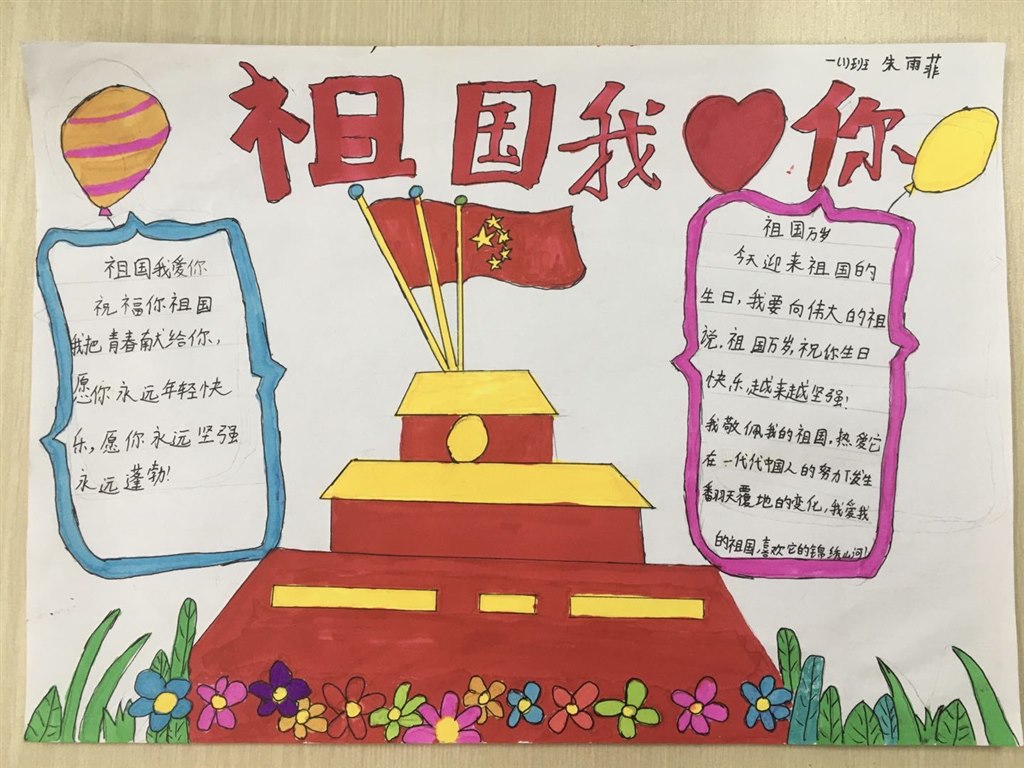 一(1)班 朱雨菲
祖国我❤你
祖国我爱你
祝福你祖国
我把青春献给你,
愿你永远年轻快
乐,愿你永远坚强
永远蓬勃!
祖国万岁
今天迎来祖国的
生日,我要向伟大的祖
说,祖国万岁,祝你生日
快乐,越来越坚强!
我敬佩我的祖国,热爱它
在一代代中国人的努力下发生
翻天覆地的变化,我爱我
的祖国,喜欢它的锦绣山河!